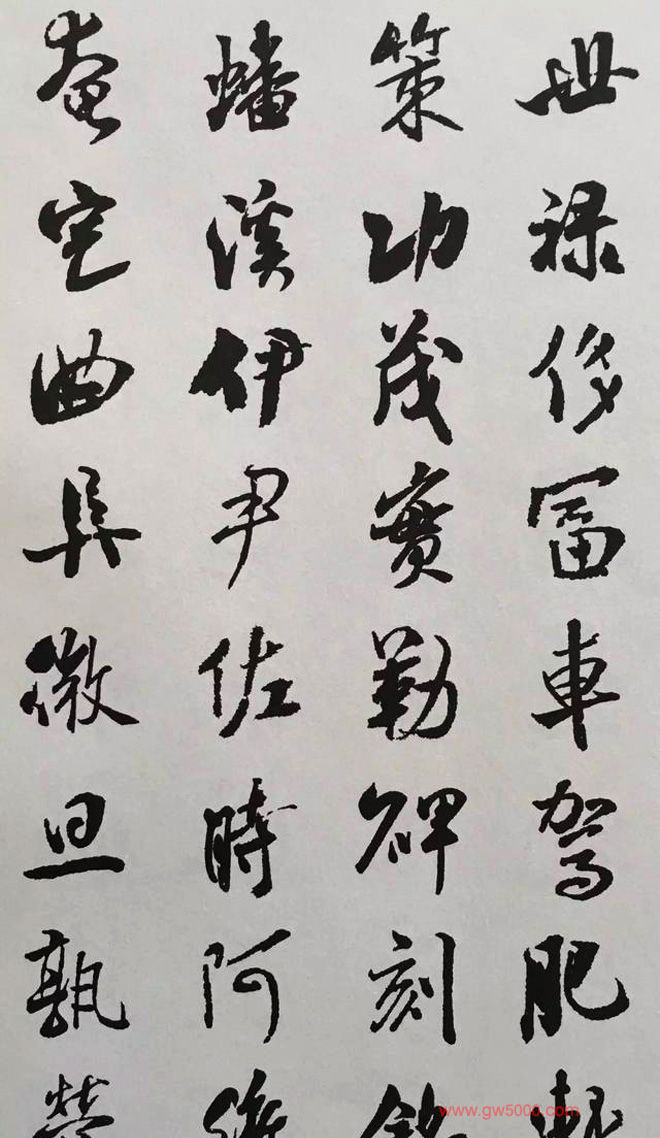 世禄侈冨車駕肥
策功茂實勒碑刻
蟠溪伊尹佐時阿
奄宅曲阜微旦孰
www.gw5000.com